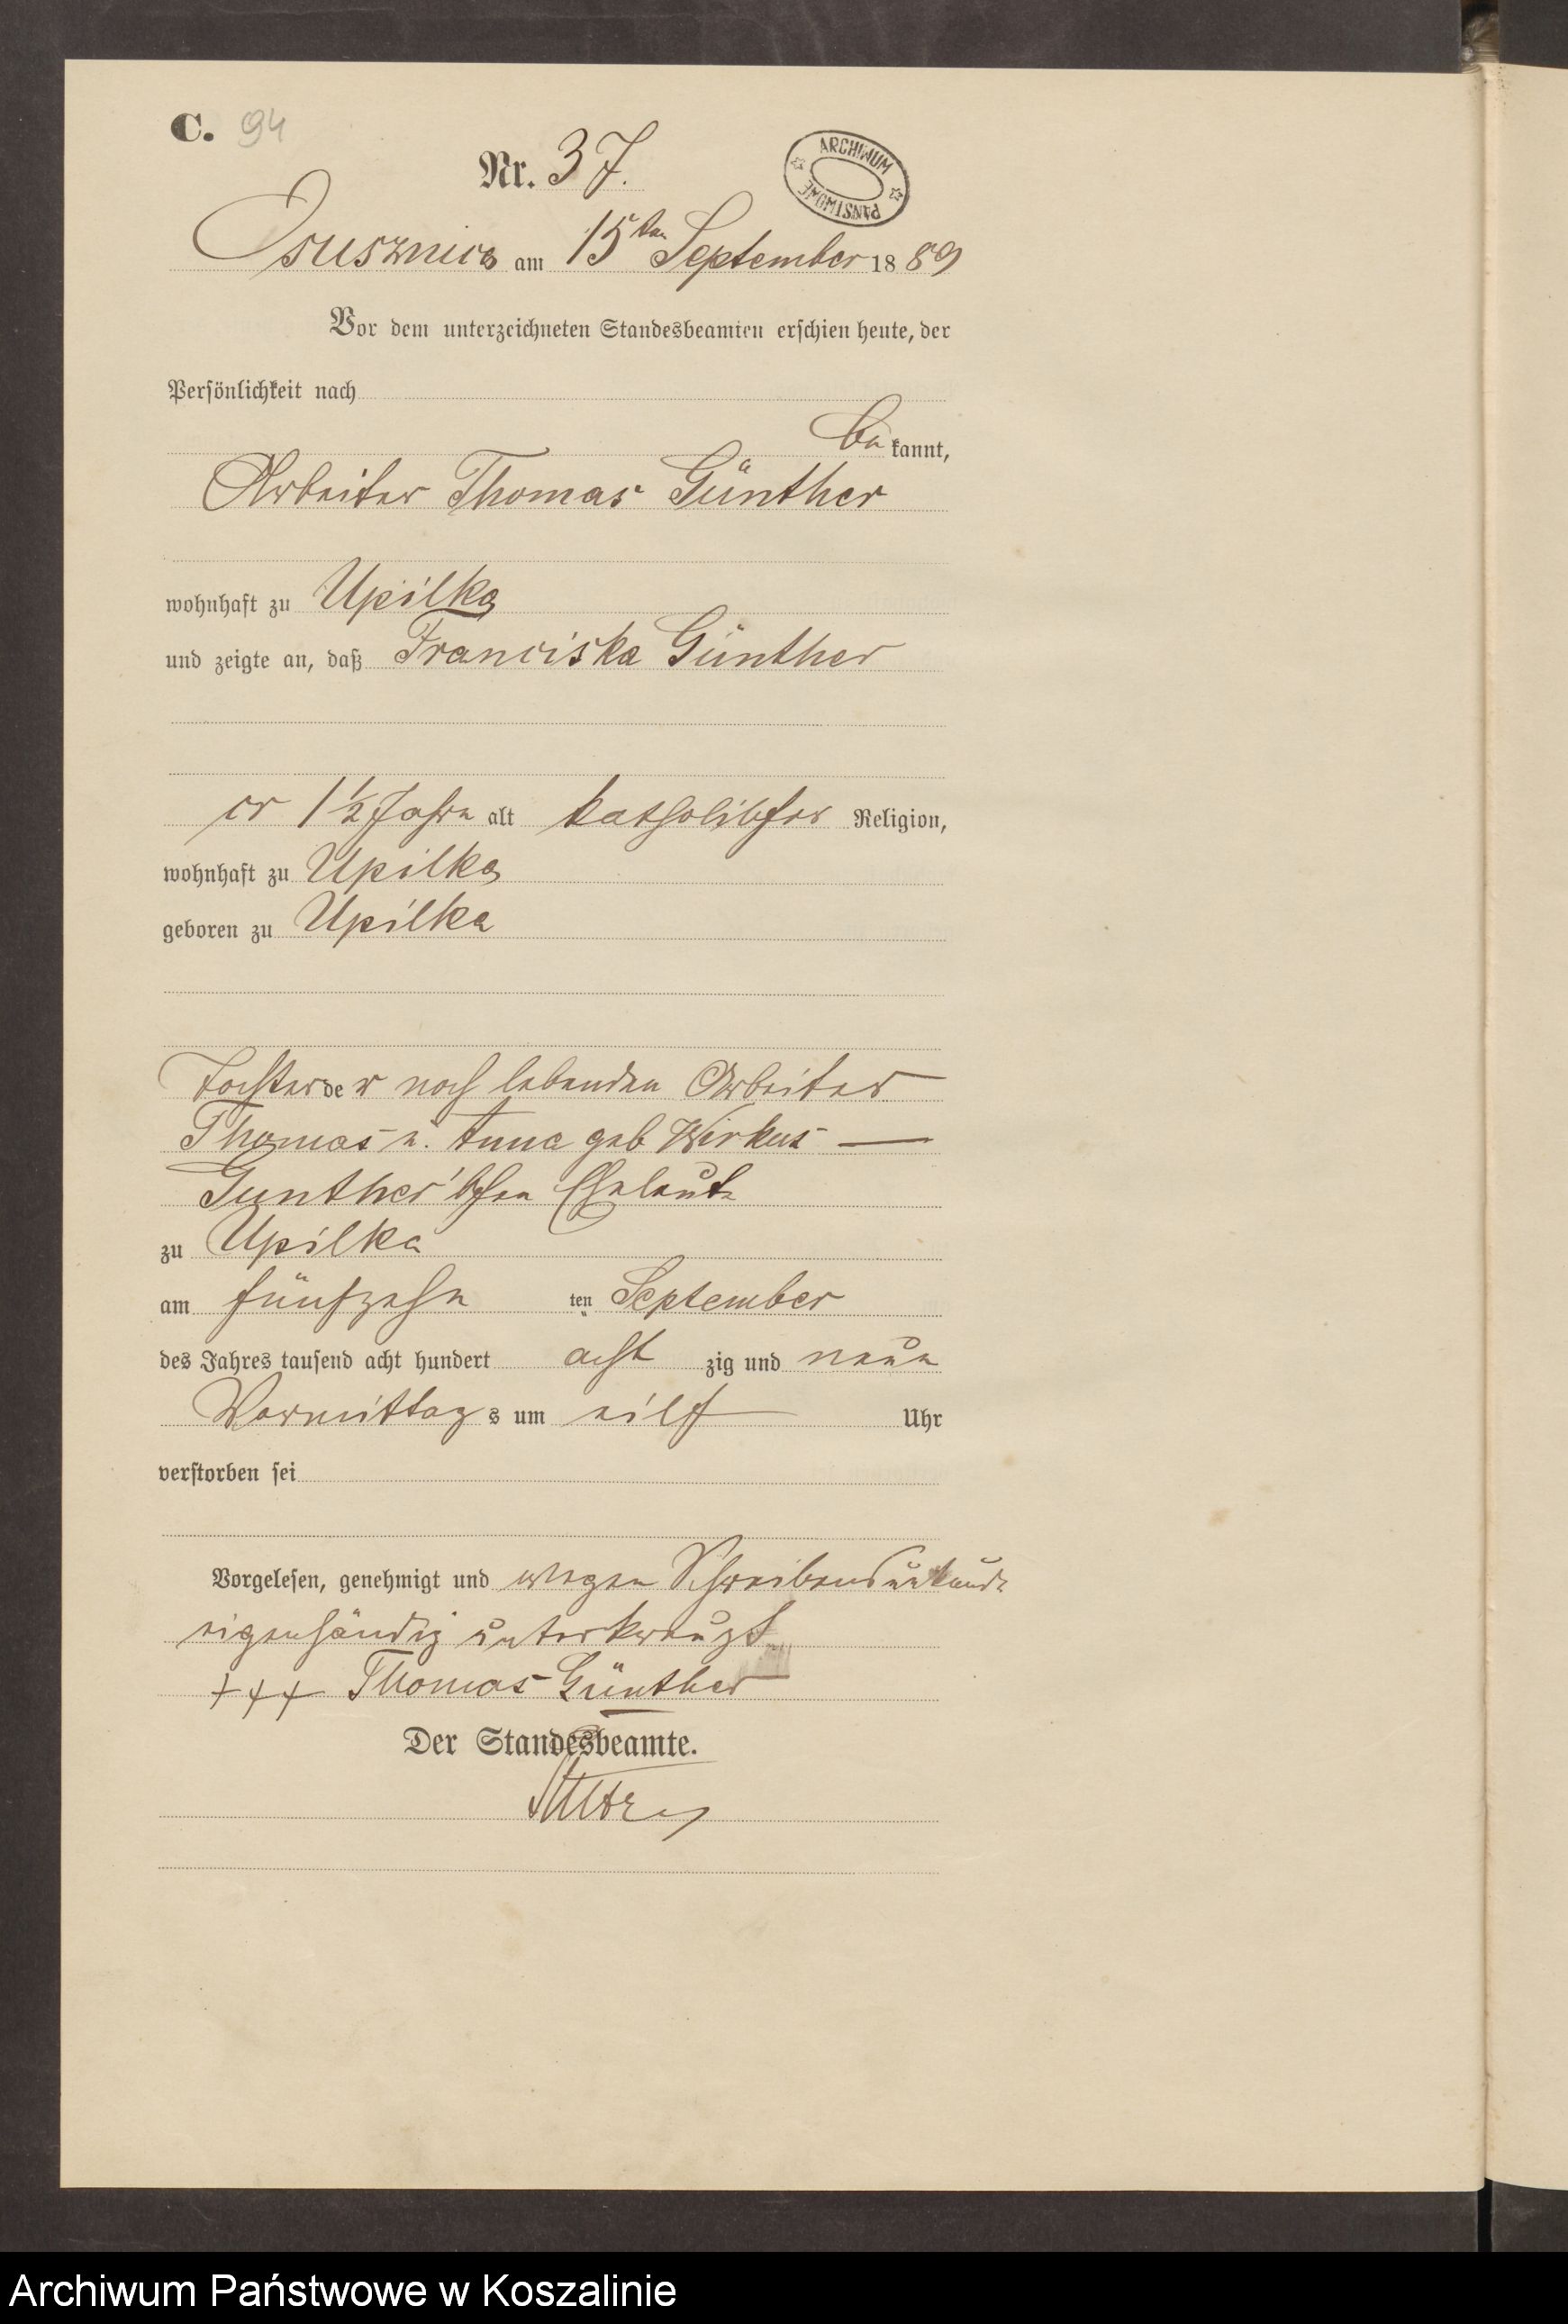 C. 94
Nr. 37.
ARCHIWUM PAŃSTWOWE
Osusznica am 15ten September 1889
Vor dem unterzeichneten Standesbeamten erschien heute, der
Persönlichkeit nach
bekannt,
Arbeiter Thomas Günther
wohnhaft zu Upilka
und zeigte an, daß Franciska Günther
cr 1½ Jahre alt katholischer Religion,
wohnhaft zu Upilka
geboren zu Upilka
Tochter der noch lebenden Arbeiter
Thomas u. Anna geb Wirkus —
Gunther'schen Eheleute
zu Upilka
am fünfzehn ten September
des Jahres tausend acht hundert acht zig und neun
Vormittags um eilf Uhr
verstorben sei
Vorgelesen, genehmigt und wegen Schreibensunkunde
eigenhändig unterkreuzt
+++ Thomas Günther
Der Standesbeamte.
Archiwum Państwowe w Koszalinie